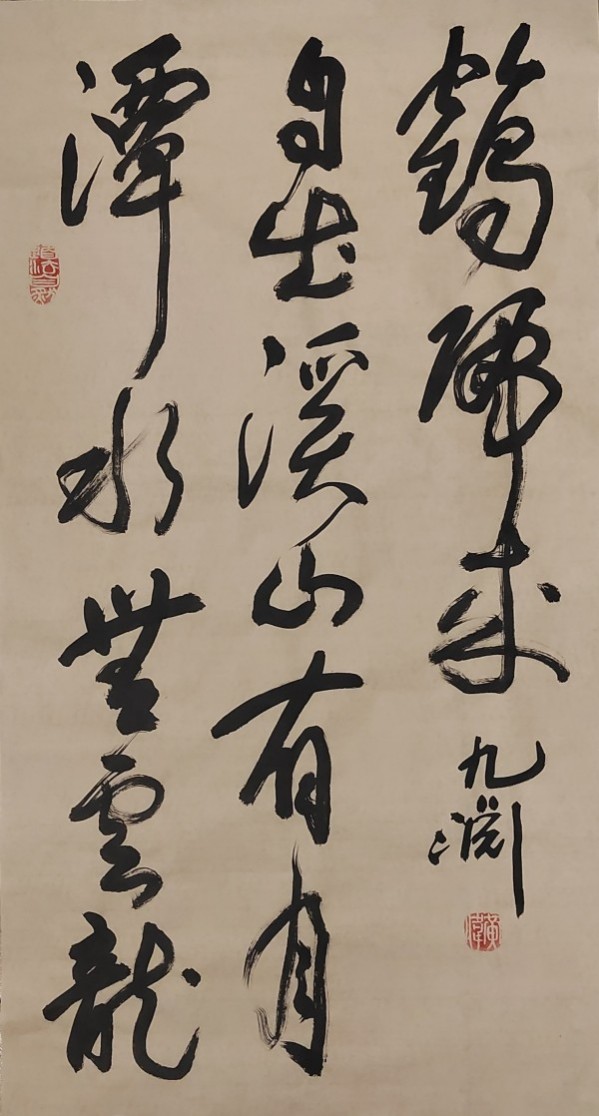 潭水無雲龍
自出溪山有月
鶴歸來
九淵